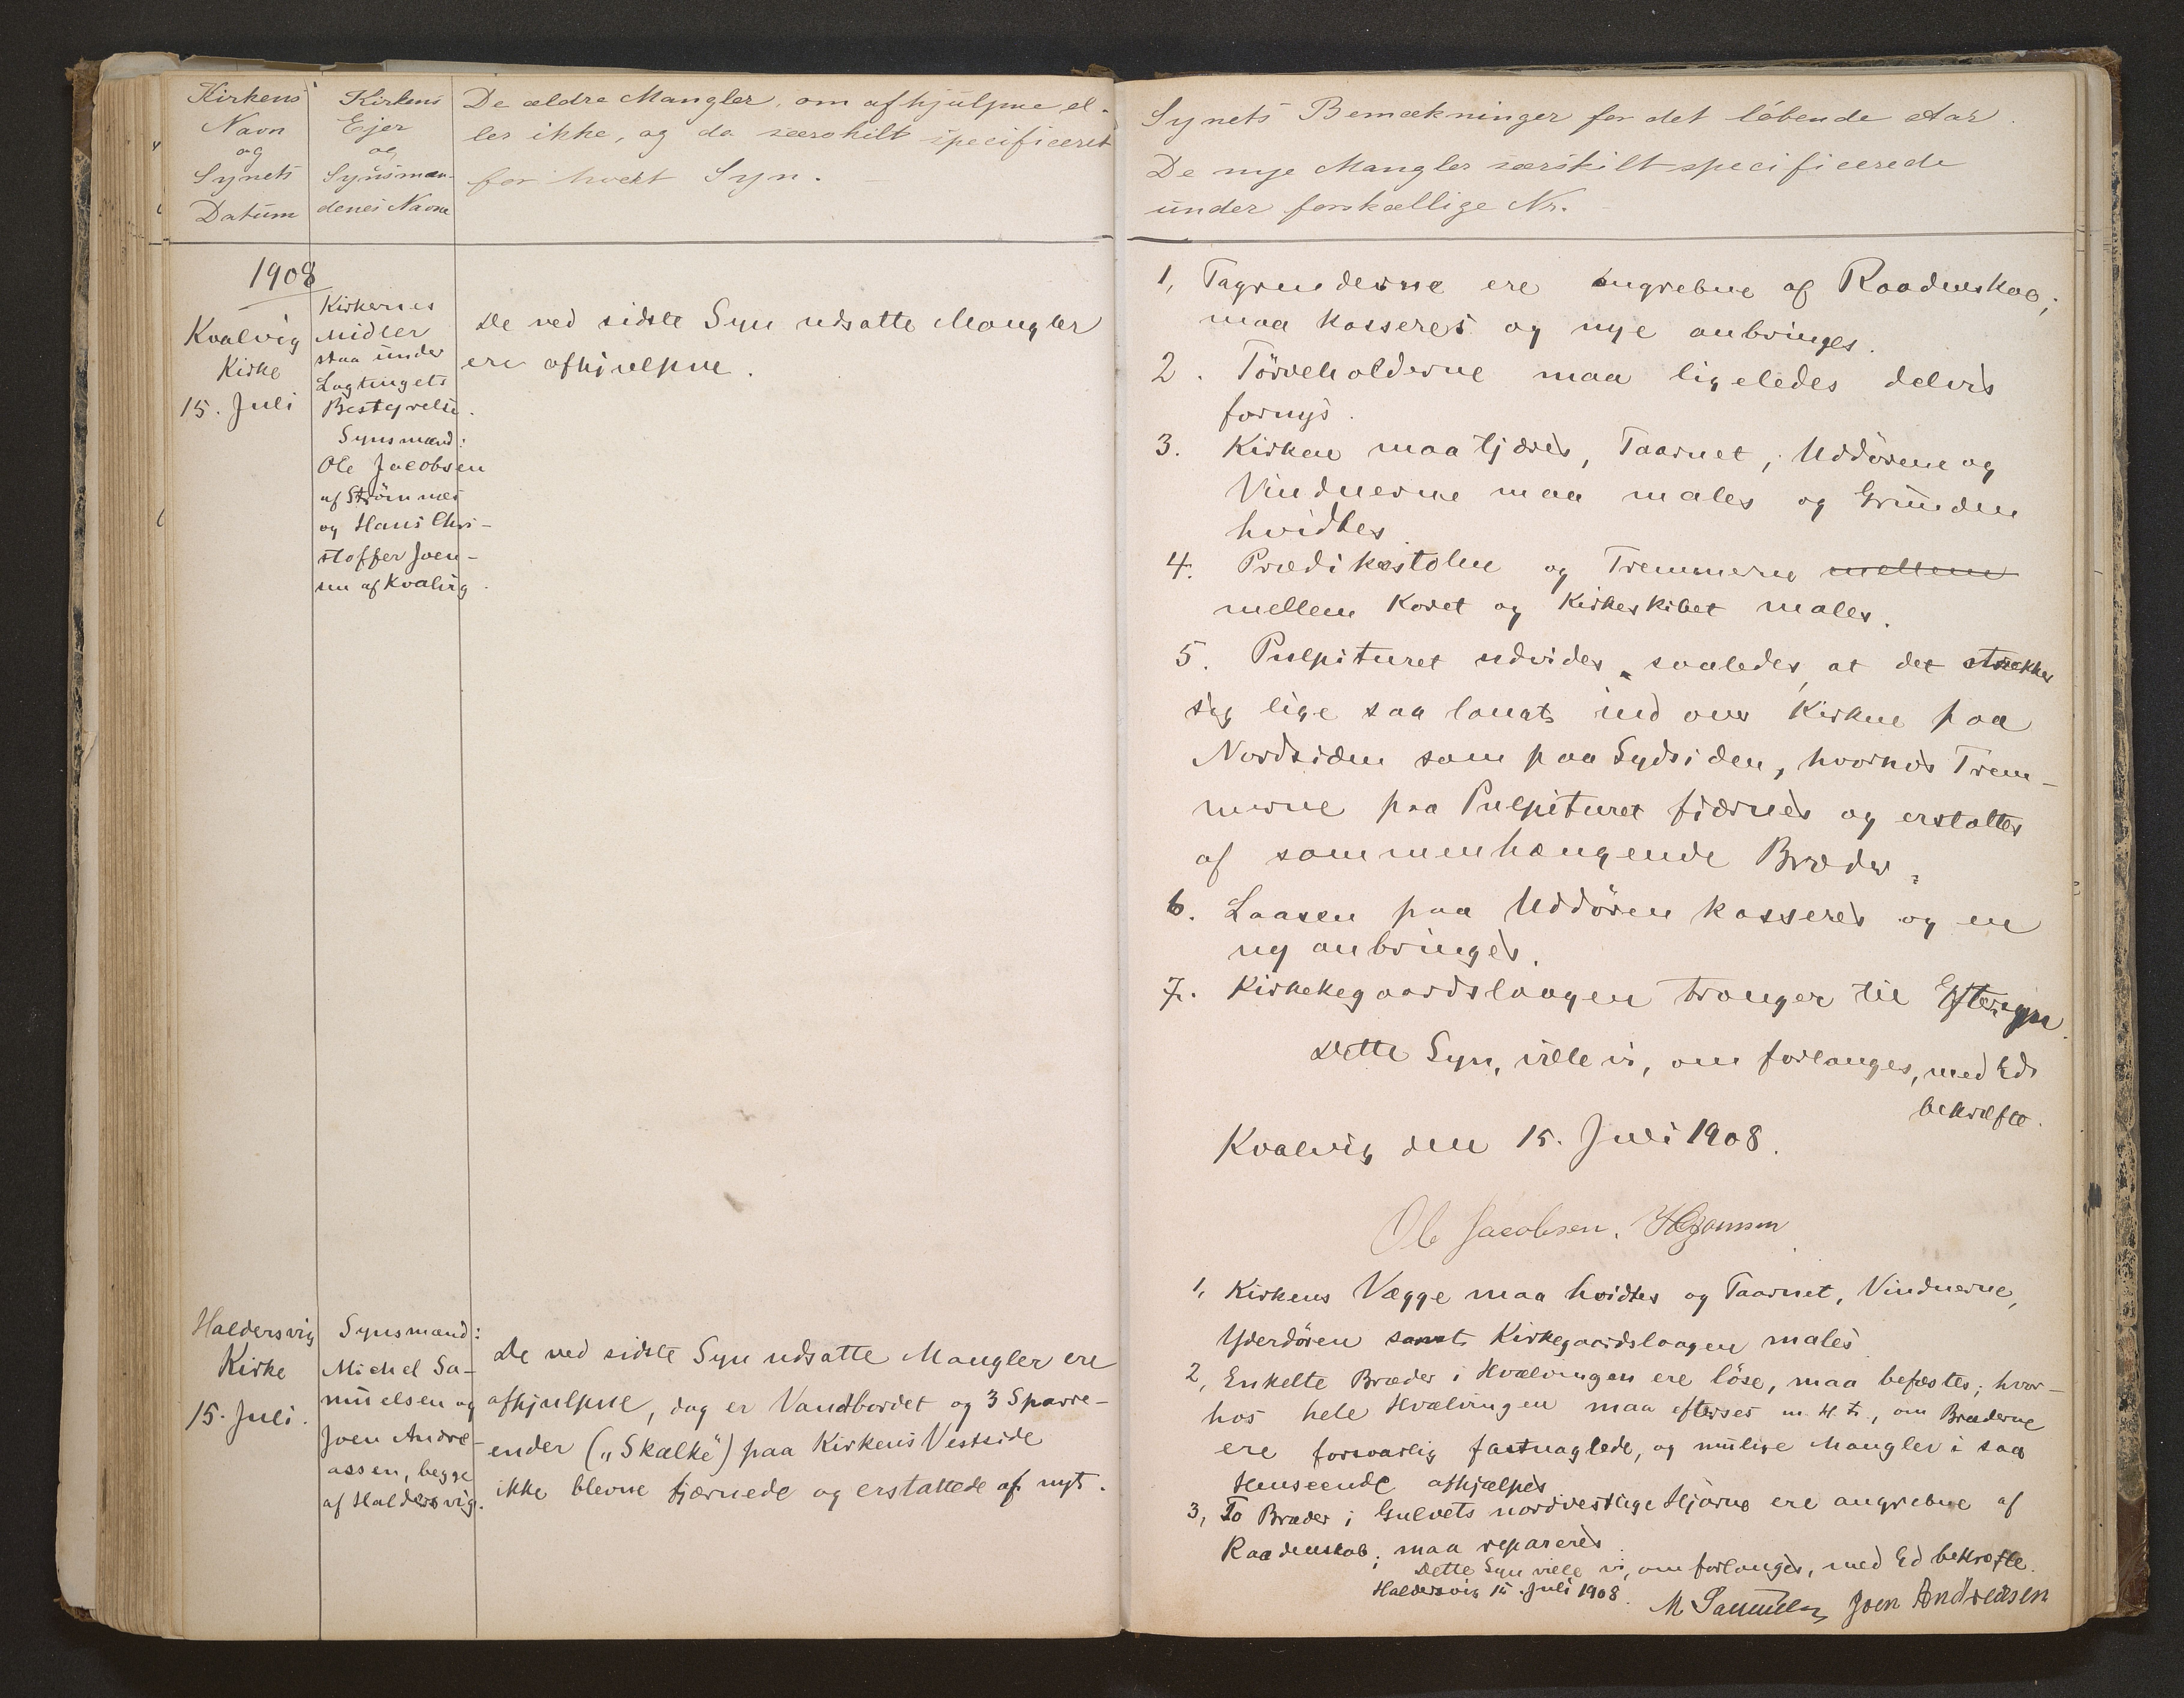 Kirkens
Navn
og
Synets
Datum
Kirkens
Ejer
og
Synsmæn-
denes Navne
De ældre Mangler, om afhjulpne el-
ler ikke, og da særskilt specificeret
for hvert Syn.
1908
Kvalvig
Kirke
15. Juli
Kirkernes
Midler
staa under
Lagtingets
Bestyrelse.
Synsmænd:
Ole Jacobsen
af Strömnæs
og Hans Chri-
stoffer Joen-
sen af Kvalvig.
De ved sidste Syn udsatte Mangler
ere afhjulpne.
Haldersvig
Kirke
15. Juli.
Synsmænd:
Michel Sa-
muelsen og
Joen Andre-
assen, begge
af Haldersvig.
De ved sidste Syn udsatte Mangler ere
afhjulpne, dog er Vandbordet og 3 Sparre-
ender („Skalke“) paa Kirkens Vestside
ikke blevne fjærnede og erstattede af nyt.
Synets Bemækninger for det löbende Aar.
De nye Mangler særskilt specificerede
under forskællige Nr.
1, Tagrenderne ere angrebne af Raadenskab;
maa kasseres og nye anbringes.
2. Törveholderne maa ligeledes delvis
fornys.
3. Kirken maa tjæres, Taarnet, Uddörene og
Vinduerne maa males og Grunden
hvidtes
4. Prædikestolen og Tremmerne mellem
mellem Koret og Kirkeskibet males.
5. Pulpituret udvides saaledes, at det strækker
sig lige saa langt ind over Kirken paa
Nordsiden som paa Sydsiden, hvorhos Trem-
merne paa Pulpituret fjærnes og erstattes
af sammenhængende Bræder.
6. Laasen paa Uddören kasseres og en
ny anbringes.
7. Kirkekegaardslaagen trænger til Eftersyn.
Dette Syn, ville vi, om forlanges, med Ed
bekræfte.
Kvalvig den 15. Juli 1908.
Ole Jacobsen. HCJoensen
1, Kirkens Vægge maa hvidtes og Taarnet, Vinduerne,
Yderdören samt Kirkegaardslaagen males
2, Enkelte Bræder i Hvælvingen ere löse, maa befæstes; hvor-
hos hele Hvælvingen maa efterses m. H. t., om Bræderne
ere forsvarlig fastnaglede, og mulige Mangler i saa
Henseende afhjælpes
3, To Bræder i Gulvets nordvestlige Hjörne ere angrebne af
Raadenskab; maa repareres.
Dette Syn ville vi, om forlanges, med Ed bekræfte.
Haldersvig 15. Juli 1908.
M Samuelsen Joen Andreasen